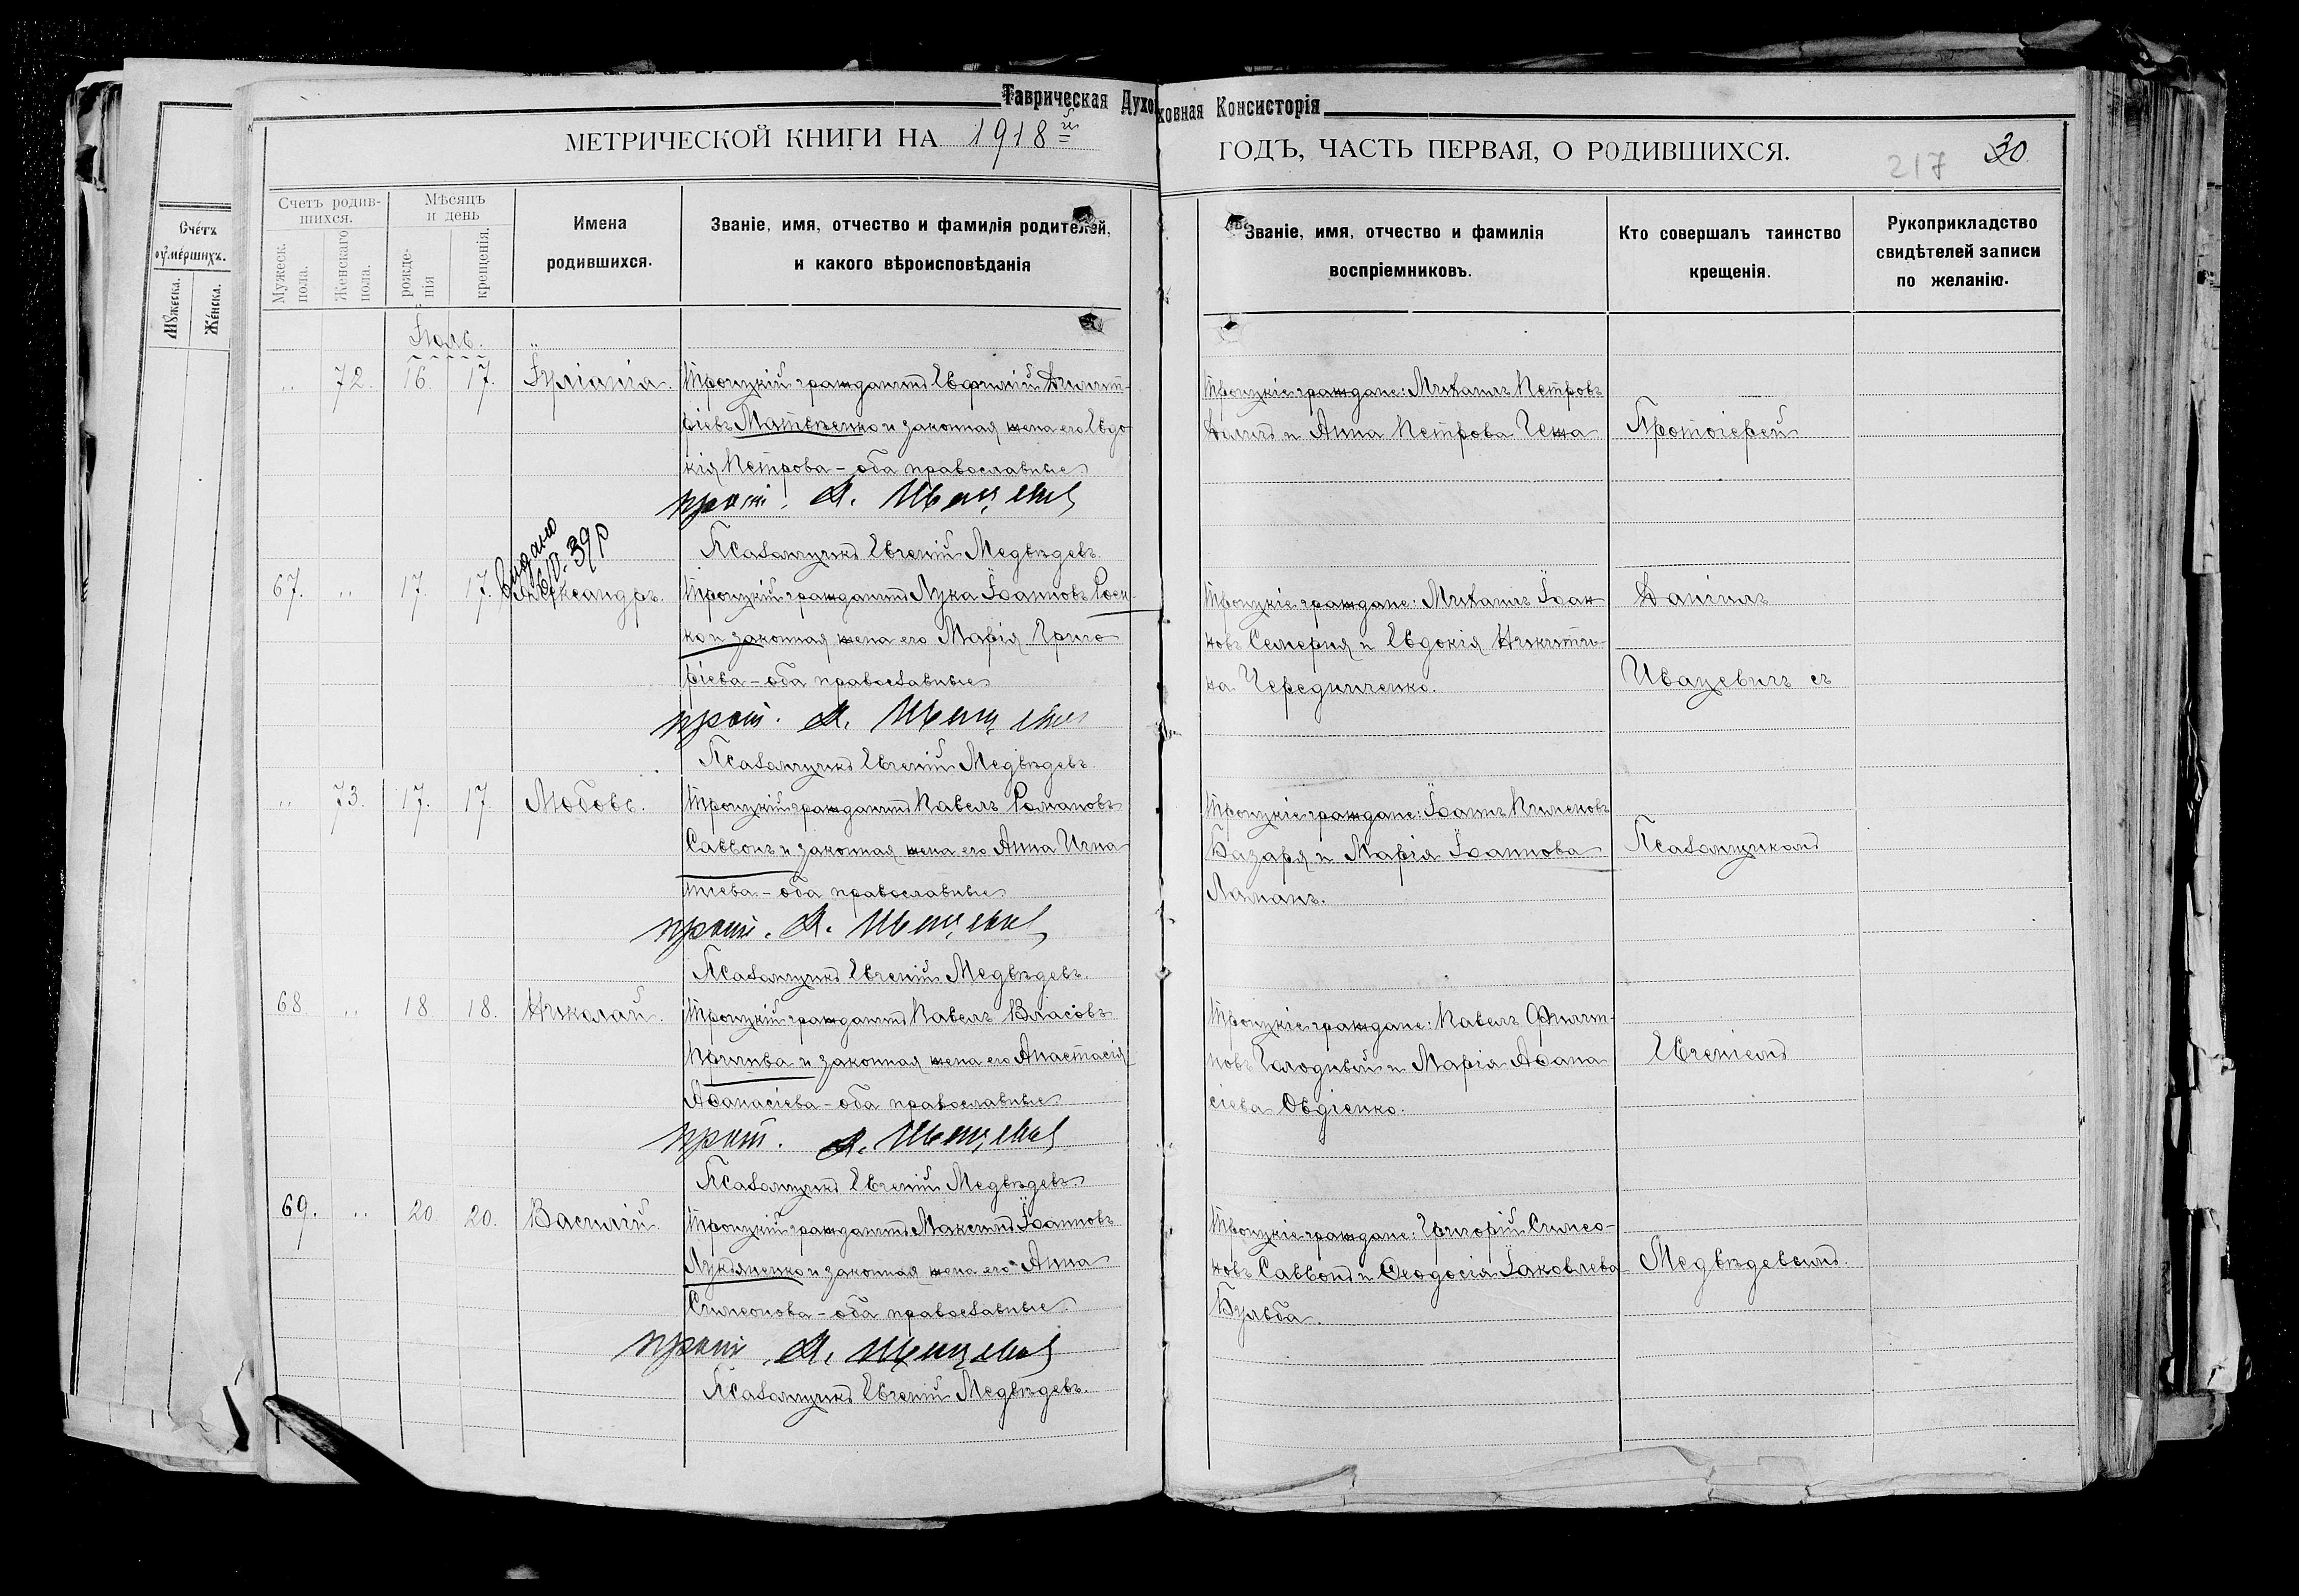 Таврическая Духовная Консисторія
МЕТРИЧЕСКОЙ КНИГИ НА 1918й ГОДЪ, ЧАСТЬ ПЕРВАЯ, О РОДИВШИХСЯ.
217 30
Счетъ умершихъ.
Мужеска. Женска.
Счетъ родившихся.
Мужеск. пола. Женскаго пола.
Мѣсяцъ и день
рожденія крещенія.
Имена родившихся.
Званіе, имя, отчество и фамилія родителей,
и какого вѣроисповѣданія
Званіе, имя, отчество и фамилія
воспріемниковъ.
Кто совершалъ таинство
крещенія.
Рукоприкладство
свидѣтелей записи
по желанію.
Іюль.
„ 72. 16. 17. Іуліанія. Троицкій гражданинъ Евфимій Димит-
ріевъ Матвѣенко и законная жена его Евдо
кія Петрова – оба православные
прот. Д. Иваицевичъ
Псаломщикъ Евгеній Медвѣдевъ.
Троицкіе граждане: Михаилъ Петровъ
и Анна Петрова
Протоіерей
выдано
39 р
67. „ 17. 17. Александръ. Троицкій гражданинъ Лука Іоанновъ
ко и законная жена его Марія Григо
ріева – оба православные
прот. Д. Ивацевичъ
Псаломщикъ Евгеній Медвѣдевъ.
Троицкіе граждане: Михаилъ Іоан
новъ Семерня и Евдокія Никити-
на Чередниченко.
Даніилъ
Ивацевичъ съ
„ 73. 17. 17. Любовь. Троицкій гражданинъ Павелъ Романовъ
Саввонъ и законная жена его Анна Игна
тіева – оба православные
прот. Д. Ивацевичъ
Псаломщикъ Евгеній Медвѣдевъ.
Троицкіе граждане: Іоаннъ
и Марія Іоаннова
Псаломщикомъ
68 „ 18 18. Николай. Троицкій гражданинъ Павелъ Власовъ
и законная жена его Анастасія
Аѳанасіева – оба православные
прот. Д. Ивацевичъ
Псаломщикъ Евгеній Медвѣдевъ.
Троицкіе граждане: Павелъ Филип-
повъ Голодный и Марія Аѳана
сіева Овдіенко.
Евгеніемъ
69. „ 20. 20. Василій. Троицкій гражданинъ Максимъ Іоанновъ
Лукьяненко и законная жена его Анна
Симеонова – оба православные.
прот. Д. Ивацевичъ
Псаломщикъ Евгеній Медвѣдевъ.
Троицкіе граждане: Григорій Симео-
новъ Саввонъ и Ѳеодосія Іаковлева
Бульба.
Медвѣдевымъ.